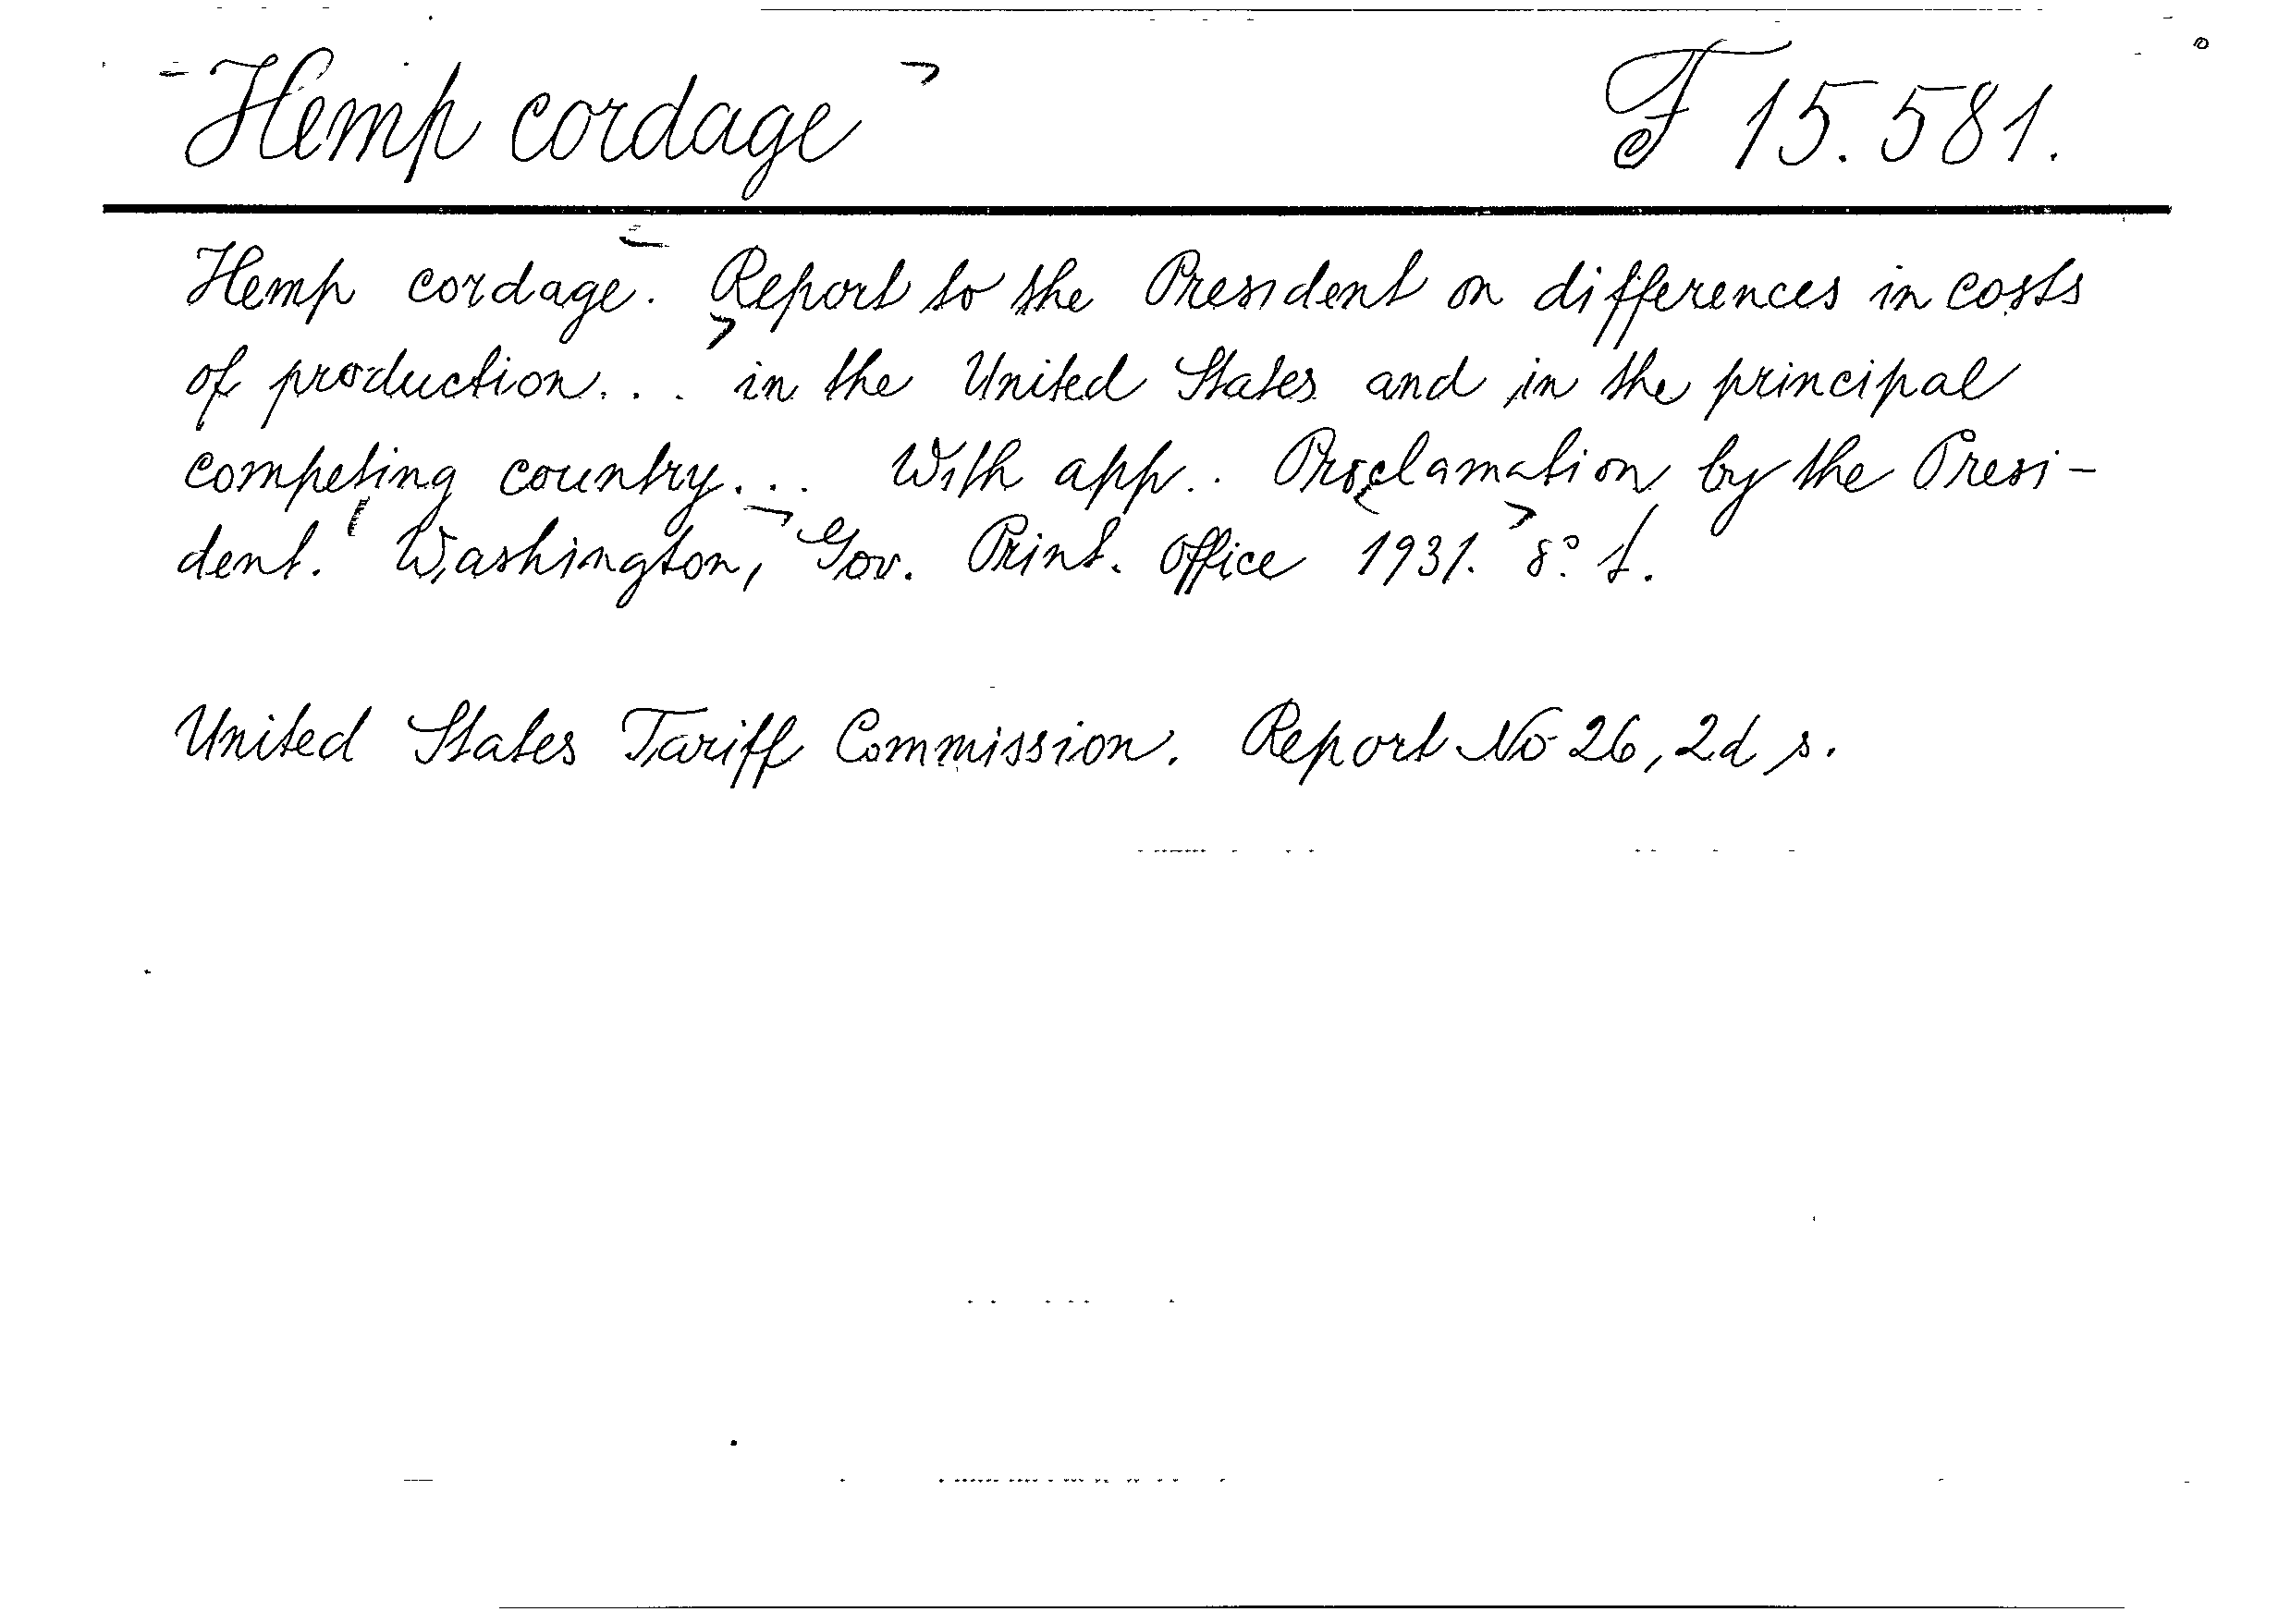 Hemp cordage F 15.581.
Hemp cordage. Report to the President on differences in costs
of production... in the United States and in the principal
competing country... With app.. Proclamation by the Presi-
dent. Washington, Gov. Print. Office 1931. 8° t.
United States Tariff Commission. Report No 26, 2d s.